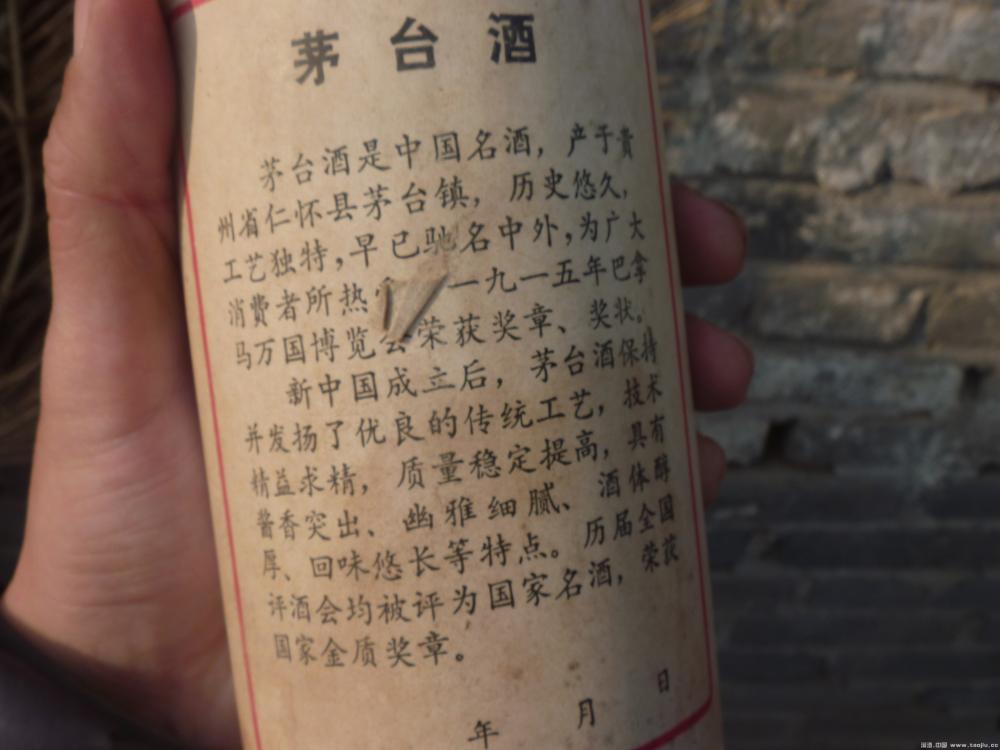 茅台酒
茅台酒是中国名酒，产于贵
州省仁怀县茅台镇，历史悠久，
工艺独特，早已驰名中外，为广大
消费者所热 一九一五年巴拿
马万国博览会荣获奖章、奖状。
新中国成立后，茅台酒保持
并发扬了优良的传统工艺，技术
精益求精，质量稳定提高，具有
酱香突出、幽雅细腻、酒体醇
厚、回味悠长等特点。历届全国
评酒会均被评为国家名酒，荣获
国家金质奖章。
年 月 日
淘酒.中国 www.taojiu.cc